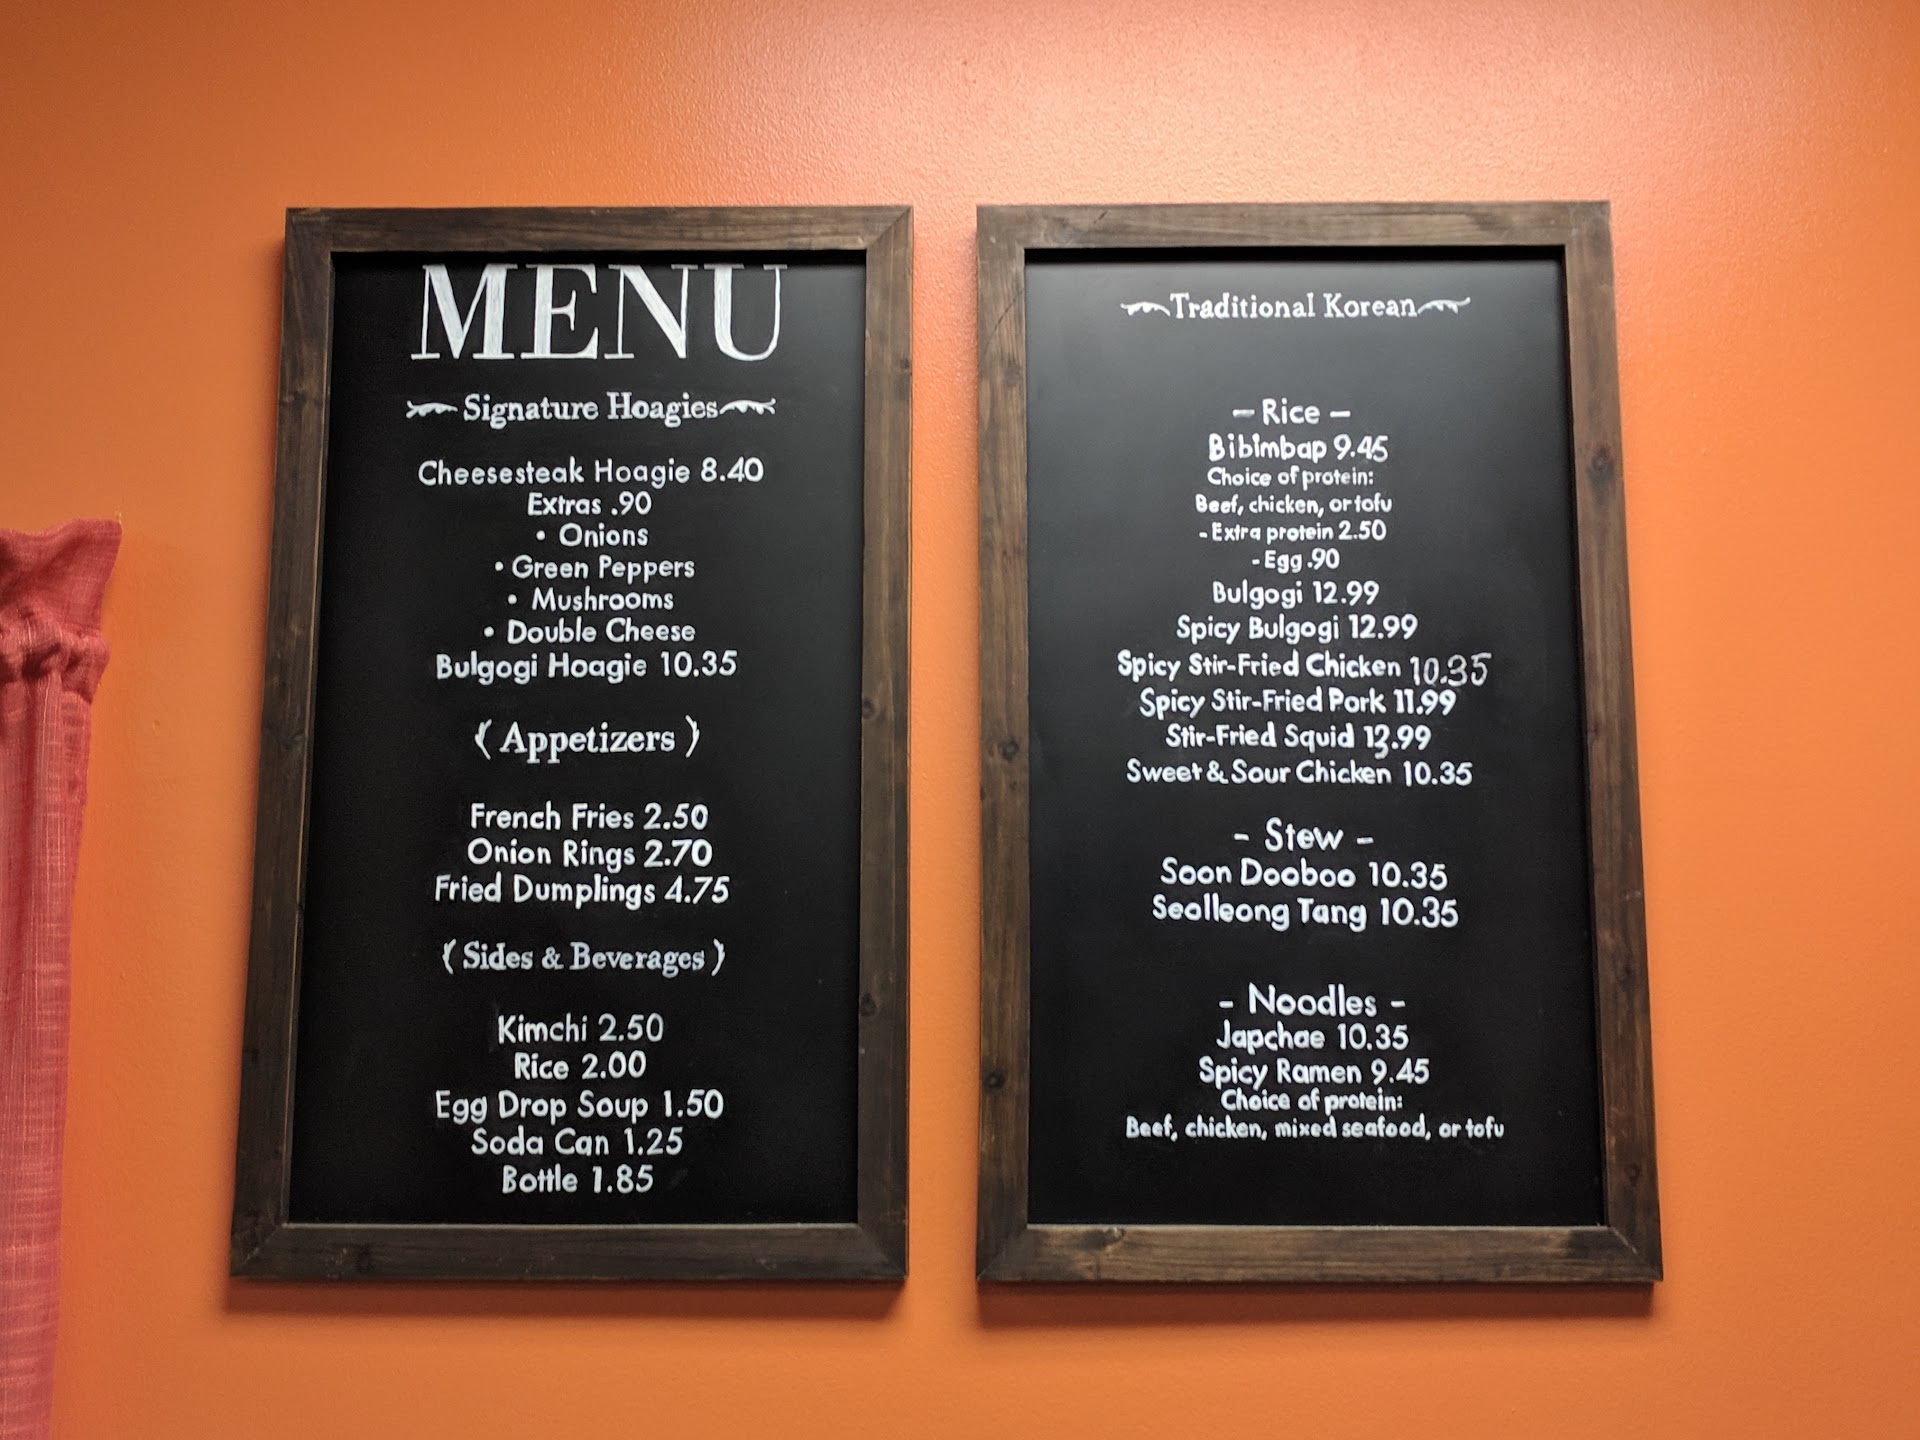 MENU
Signature Hoagies
Cheesesteak Hoagie 8.40
Extras .90
• Onions
• Green Peppers
• Mushrooms
• Double Cheese
Bulgogi Hoagie 10.35
(Appetizers)
French Fries 2.50
Onion Rings 2.70
Fried Dumplings 4.75
(Sides & Beverages)
Kimchi 2.50
Rice 2.00
Egg Drop Soup 1.50
Soda Can 1.25
Bottle 1.85
Traditional Korean
- Rice -
Bibimbap 9.45
Choice of protein:
Beef, chicken, or tofu
- Extra protein 2.50
- Egg .90
Bulgogi 12.99
Spicy Bulgogi 12.99
Spicy Stir-Fried Chicken 10.35
Spicy Stir-Fried Pork 11.99
Stir-Fried Squid 13.99
Sweet & Sour Chicken 10.35
- Stew -
Soon Dooboo 10.35
Seolleong Tang 10.35
- Noodles -
Japchae 10.35
Spicy Ramen 9.45
Choice of protein:
Beef, chicken, mixed seafood, or tofu